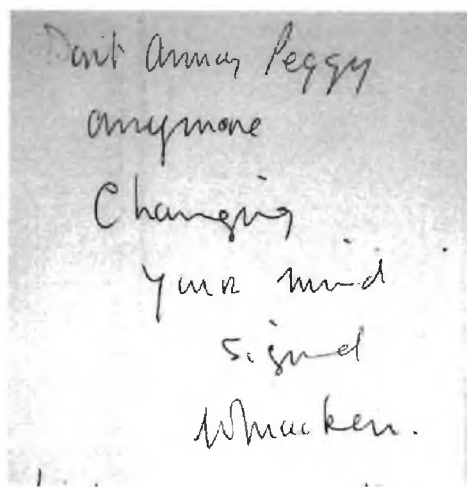 Don't Annoy Peggy
anymore
Changing
your mind
signed
Whacker.